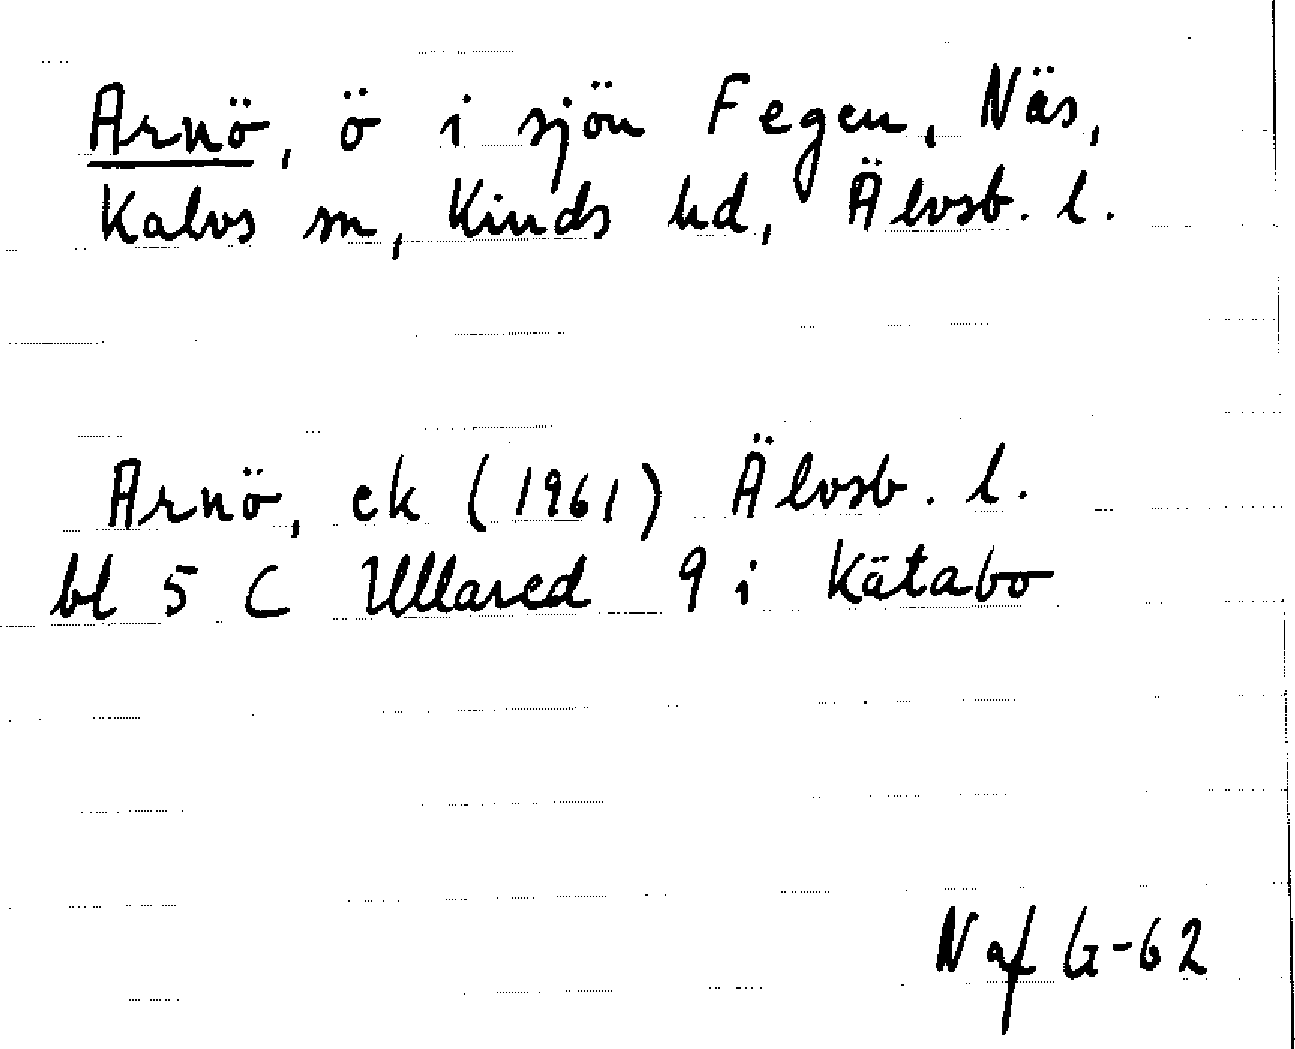 Arnö, ö i sjön Fegen, Näs,
Kalvs sn, Kinds hd, Älvsb. l.
Arnö, ek (1961) Älvsb. l.
bl 5 C Ullared 9 i Kätabo
Naf G-62